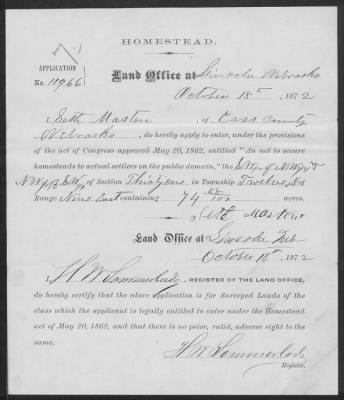 HOMESTEAD.
APPLICATION
No. 11966
Land Office at Lincoln Nebraska
October 18th, 1872
I, Seth Masten, of Cass County
Nebraska, do hereby apply to enter, under the provisions
of the act of Congress approved May 20, 1862, entitled "An act to secure
homesteads to actual settlers on the public domain," the
of Section Thirty one in Township Twelve N of
Range Nine East containing 74 /100 acres.
Seth Masten
Land Office at Lincoln Neb
October 18th, 1872
I, H W Sommerlad, REGISTER OF THE LAND OFFICE,
do hereby certify that the above application is for Surveyed Lands of the
class which the applicant is legally entitled to enter under the Homestead
act of May 20, 1862, and that there is no prior, valid, adverse right to the
same.
H W Sommerlad
Register.